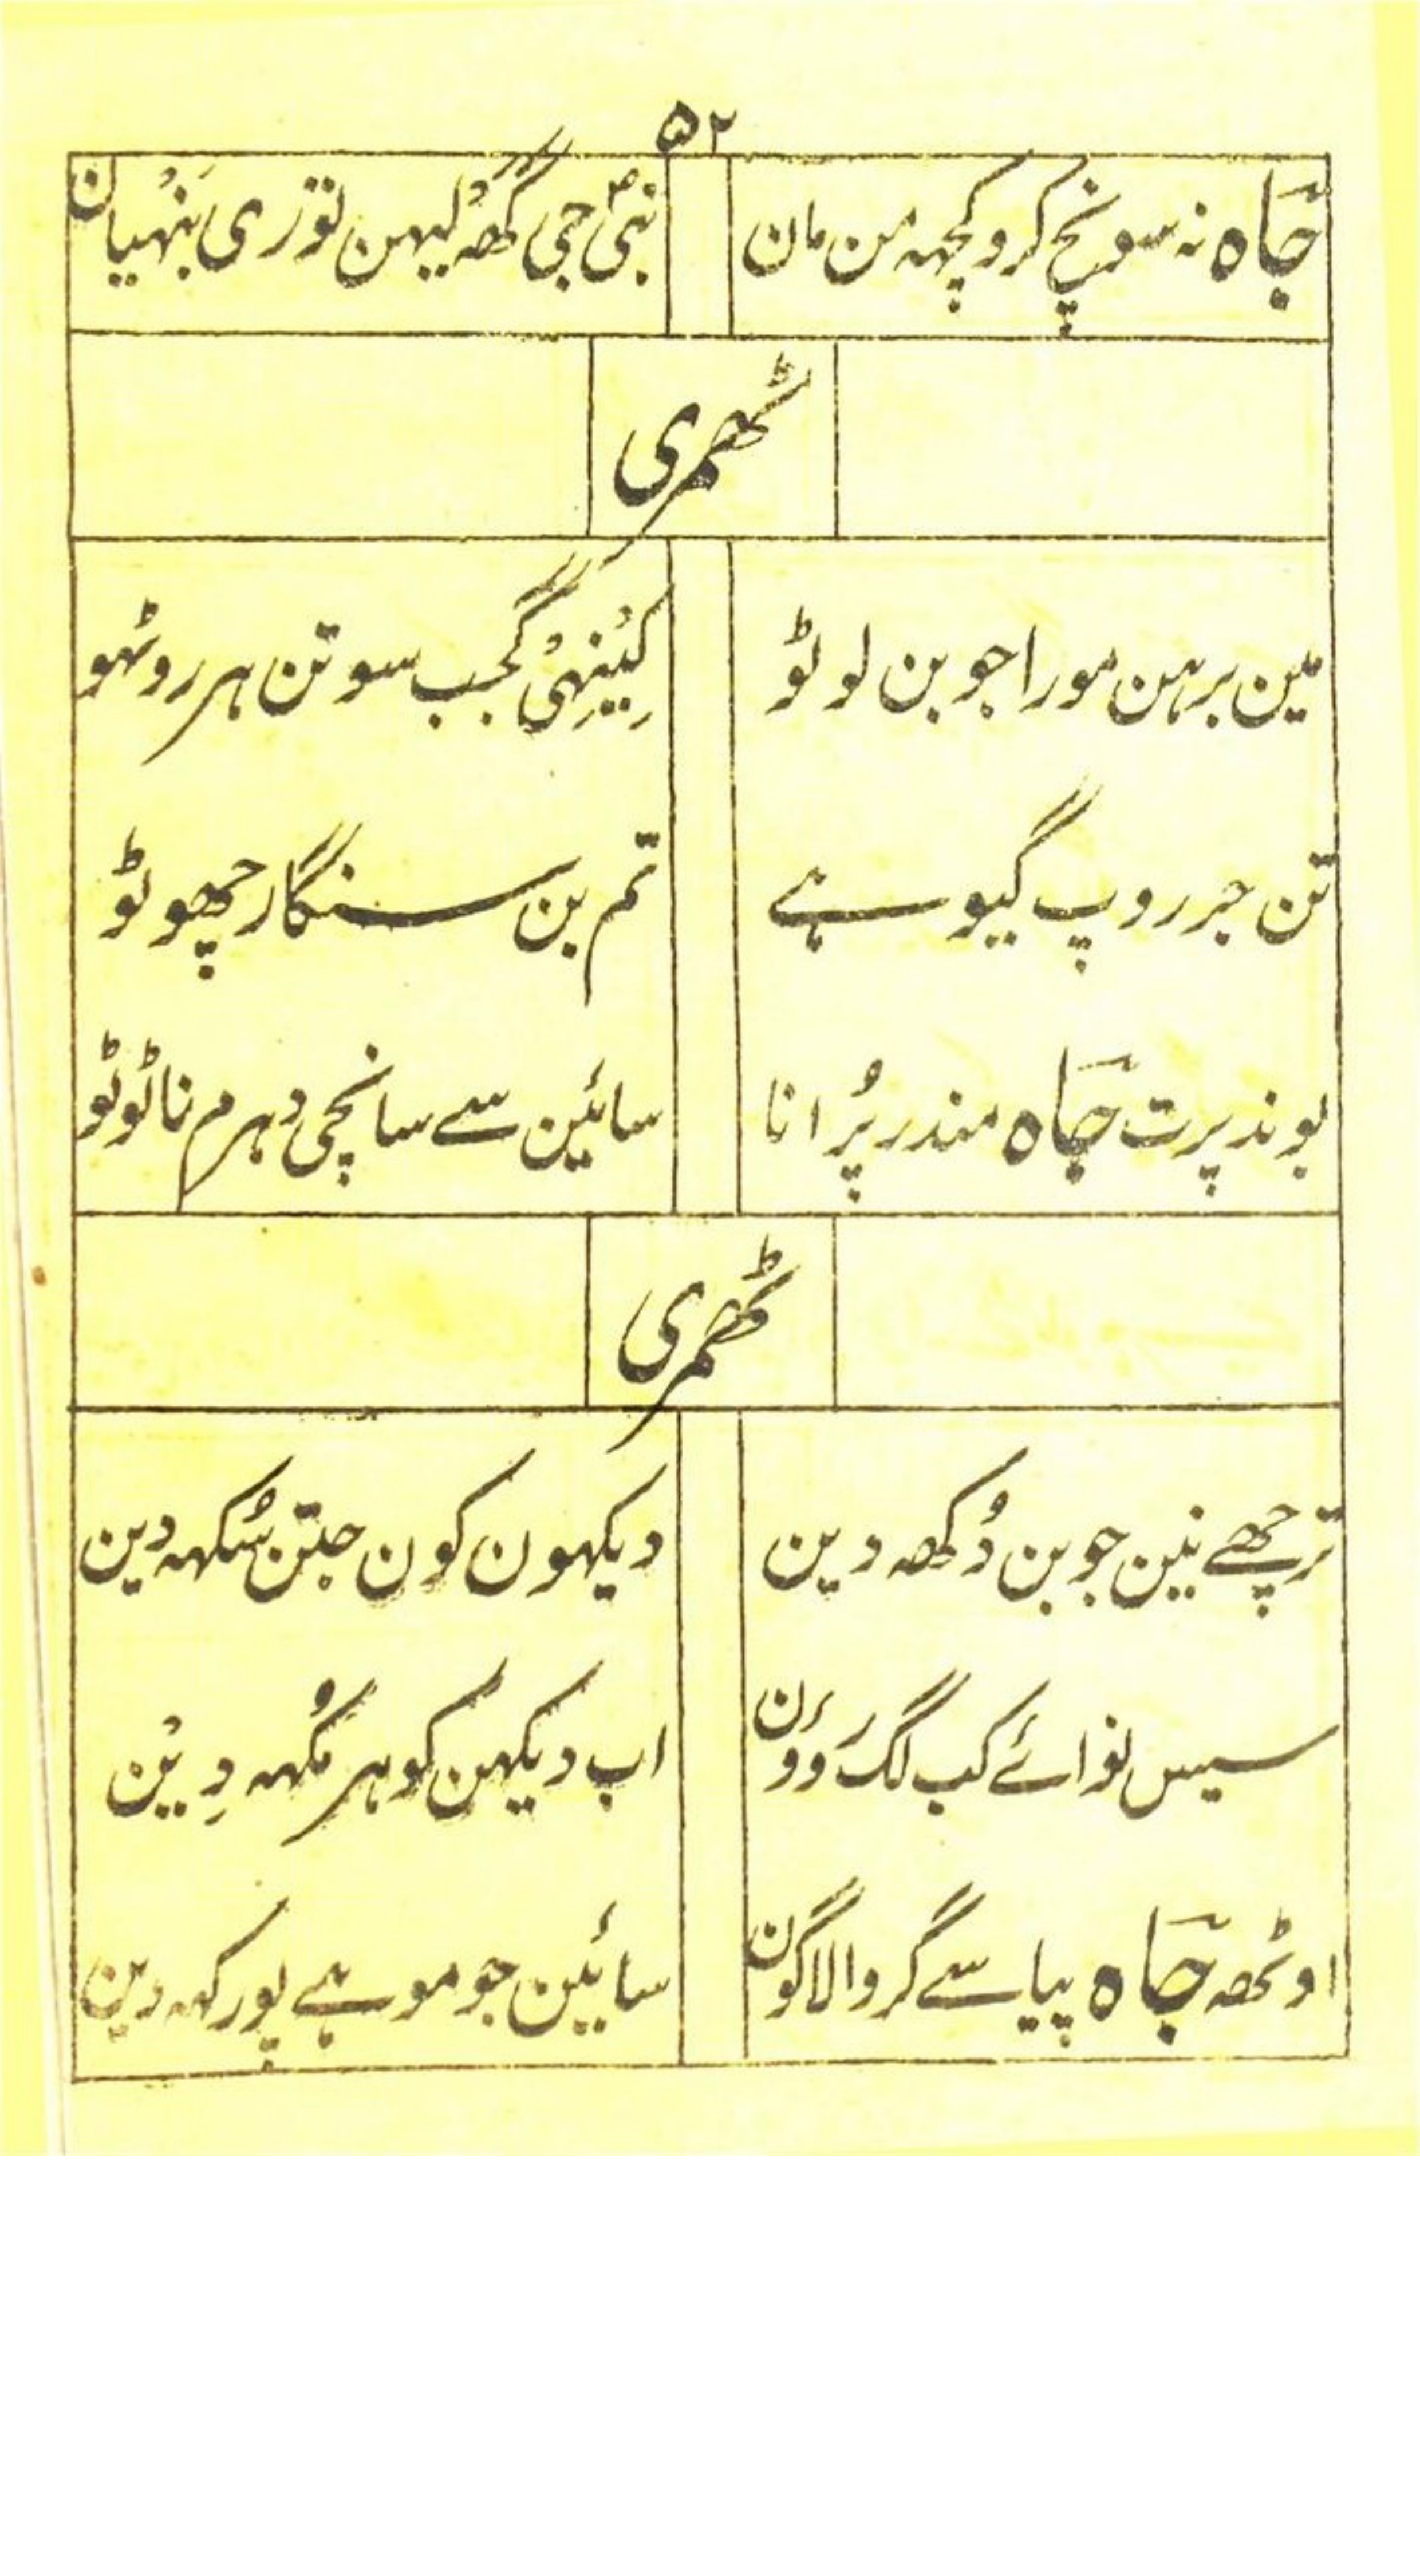 ۵۲
جاہ نہ سونچ کرو کچہہ من مان نبیؐ جی گھہ لیہن توری بَنہْیان
ٹھمری
مین برہن مورا جوبن لوٹو کِیْنِہیْ گجب سوتن ہر روٹہو
تن جر روپ گیو ہے تم بن سنگار چھوٹو
بوند پرت چاہ مندر پُرانا سائین سے سانچی دہرم نا ٹوٹو
ٹھمری
ترچھے نین جوبن دُکھہ دین دیکہون کون جتن سُکہہ دین
سیس نوائے کب لگ روؤن اب دیکہن کو ہر مُکہہ دِیْن
اوٹھہ چاہ پیا سے گروا لاگون سائین جو موہے پور کہہ دین